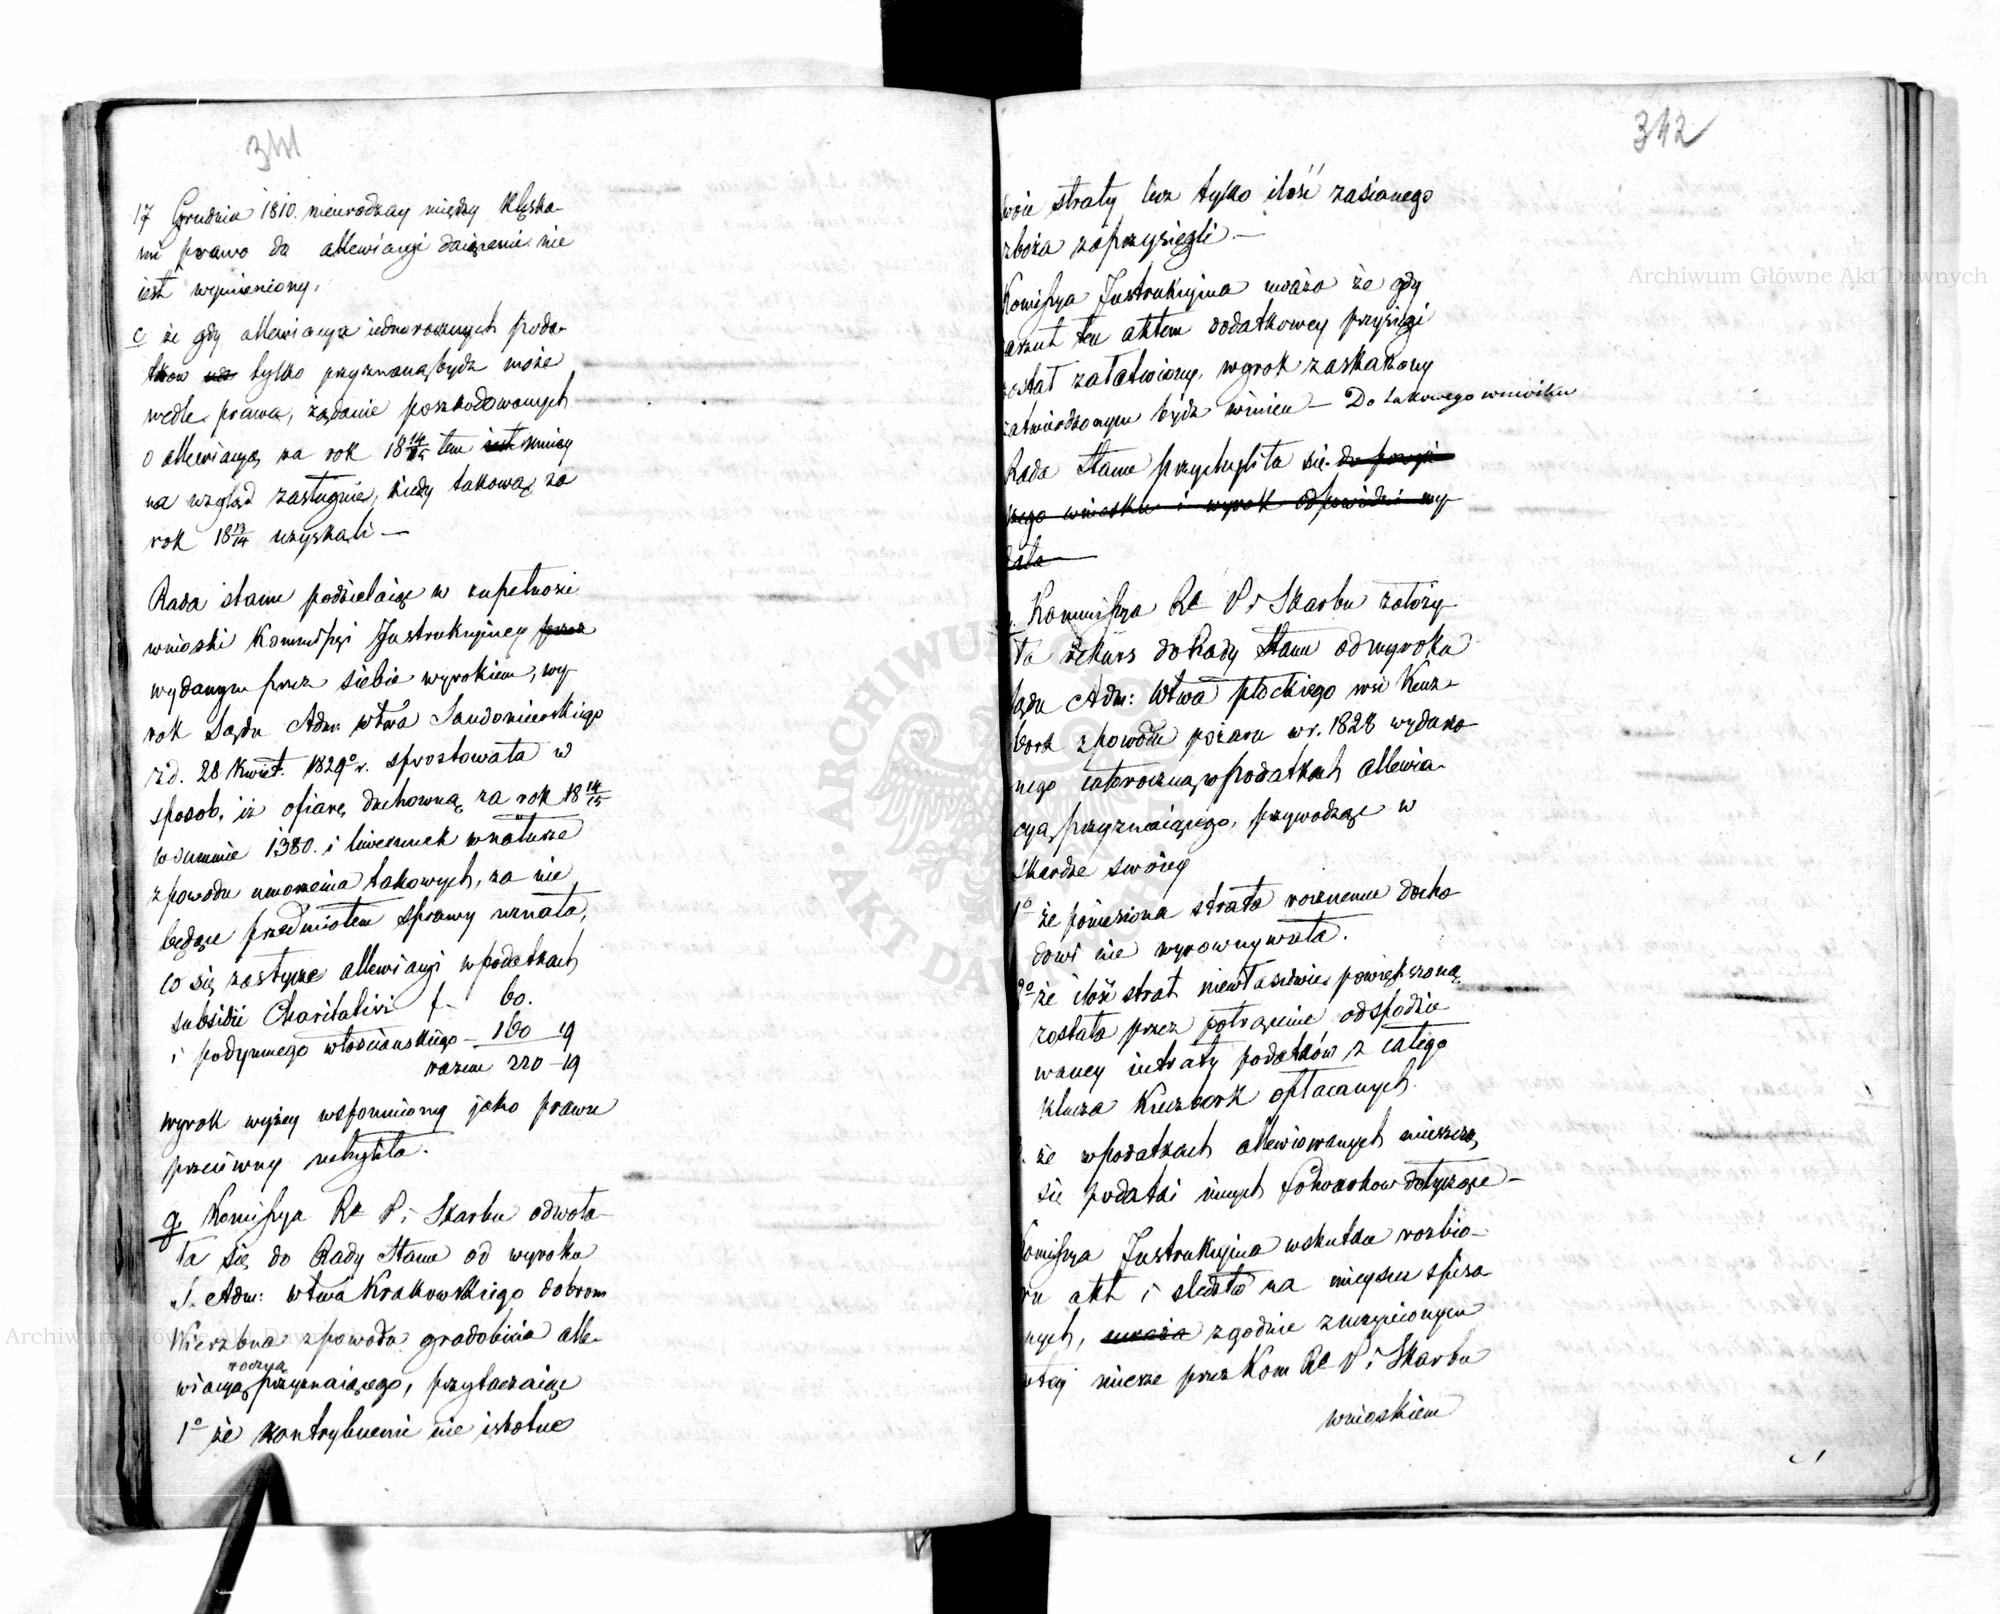 341
17 Grudnia 1810. nieurodzay między klęska-
mi prawo do allewiacyi daiącemi nie
iest wymieniony,
c że gdy allewiacya iednorocznych poda-
tkow tylko przyznaną bydź może
wedle prawa, żądanie poszkodowanych
o allewiacyą za rok 18 14/15 tem iest mniey
na wzgląd zasługuie, kiedy takową za
rok 18 13/14 uzyskali —
Rada stanu podzielaiąc w zupełności
wnioski Kommissyi Instrukcyiney przez
wydanym przez siebie wyrokiem, wy-
rok Sądu Adm. wtwa Sandomierskiego
z d. 28 Kwiet. 1829 r. sprostowała w
sposob, iż ofiarę duchowną za rok 18 14/15
w summie 1380. i liwerunek w naturze
z powodu umorzenia takowych, za nie
będące przedmiotem sprawy uznała,
co się zastycze allewiacyi w podatkach
subsidii Charitativi f. 60.
i podymnego włosciańskiego — 160 19
razem 220 — 19
wyrok wyżey wspomniony jako prawu
przeciwny uchyliła.
g, Komissya Rz. P. i Skarbu odwoła-
ła się do Rady Stanu od wyroku
S. Adm: wtwa Krakowskiego dobrom
Wierzbna z powodu gradobicia alle-
roczną
wiacyą przyznaiącego, przytaczaiąc
1o że kontrybuenci nie istotne
342
swoie straty lecz tylko ilość zasianego
zboża zaprzysięgli. —
Komissya Instrukcyina uważa że gdy
zarzut ten aktem dodatkowey przysięgi
został załatwiony, wyrok zaskarżony
zatwierdzonym bydź winien — Do takowego wniosku
Rada Stanu przychyliła się. do powyż-
szego wniosku i wyrok odpowiedni wy-
dała —
Kommissya Rz. P. i Skarbu założy-
ła rekurs do Rady Stanu od wyroku
Sądu Adm: Wtwa płockiego wsi Kucz-
bork z powodu pożaru w r. 1828 wydane-
nego całoroczną w podatkach allewia-
cyą przyznaiącego, przywodząc w
skardze swoiey
1o że poniesiona strata rocznemu docho-
dowi nie wyrownywała.
2o że ilość strat niewłaściwie powiększoną
została przez potrącenie od spodzie
waney intraty podatków z całego
klucza Kuczbork opłacanych.
że w podatkach allewiowanych mieszczą
się podatki innych Folwarkow dotyczące —
Komissya Instrukcyina w skutku rozbio-
ru akt i sledztw na mieyscu spisa-
nych, uważa zgodnie z uczynionym
w tey mierze przez Kom Rz. P. i Skarbu
wnioskiem
ARCHIWUM GŁÓWNE AKT DAWNYCH
Archiwum Główne Akt Dawnych
Archiwum Główne Akt Dawnych